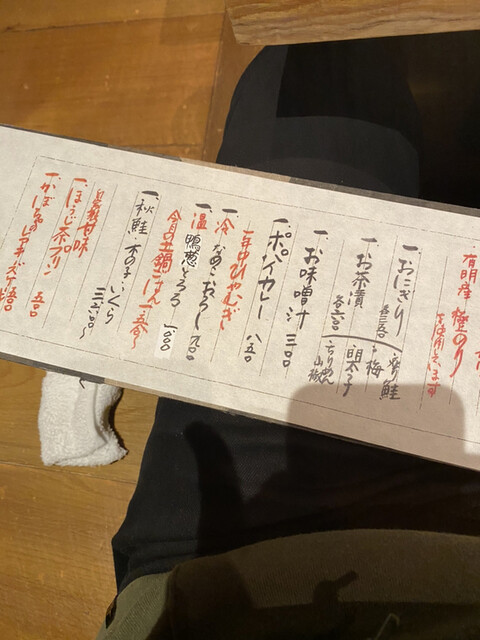 有明産 橙のり
を使用しています
一、おにぎり 各三三〇
一、お茶漬 各六三〇
鮭
梅
明太子
ちりめん山椒
一、お味噌汁 三三〇
一、ポパイカレー 八五〇
一年中ひやむぎ
一、冷 なめこおろし 九〇〇
一、温 鴨葱とろろ 一、一〇〇
今月の土鍋ごはん 一、五合〜
一、秋鮭 木の子 いくら
自家製甘味
一、ほうじ茶プリン 五〇〇
一、かぼちゃのレアチーズケーキ